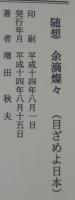 随想　余滴燦々　（目ざめよ日本）
印刷　平成十四年八月一日
発行年月　平成十四年八月十五日
著者　増田秋夫